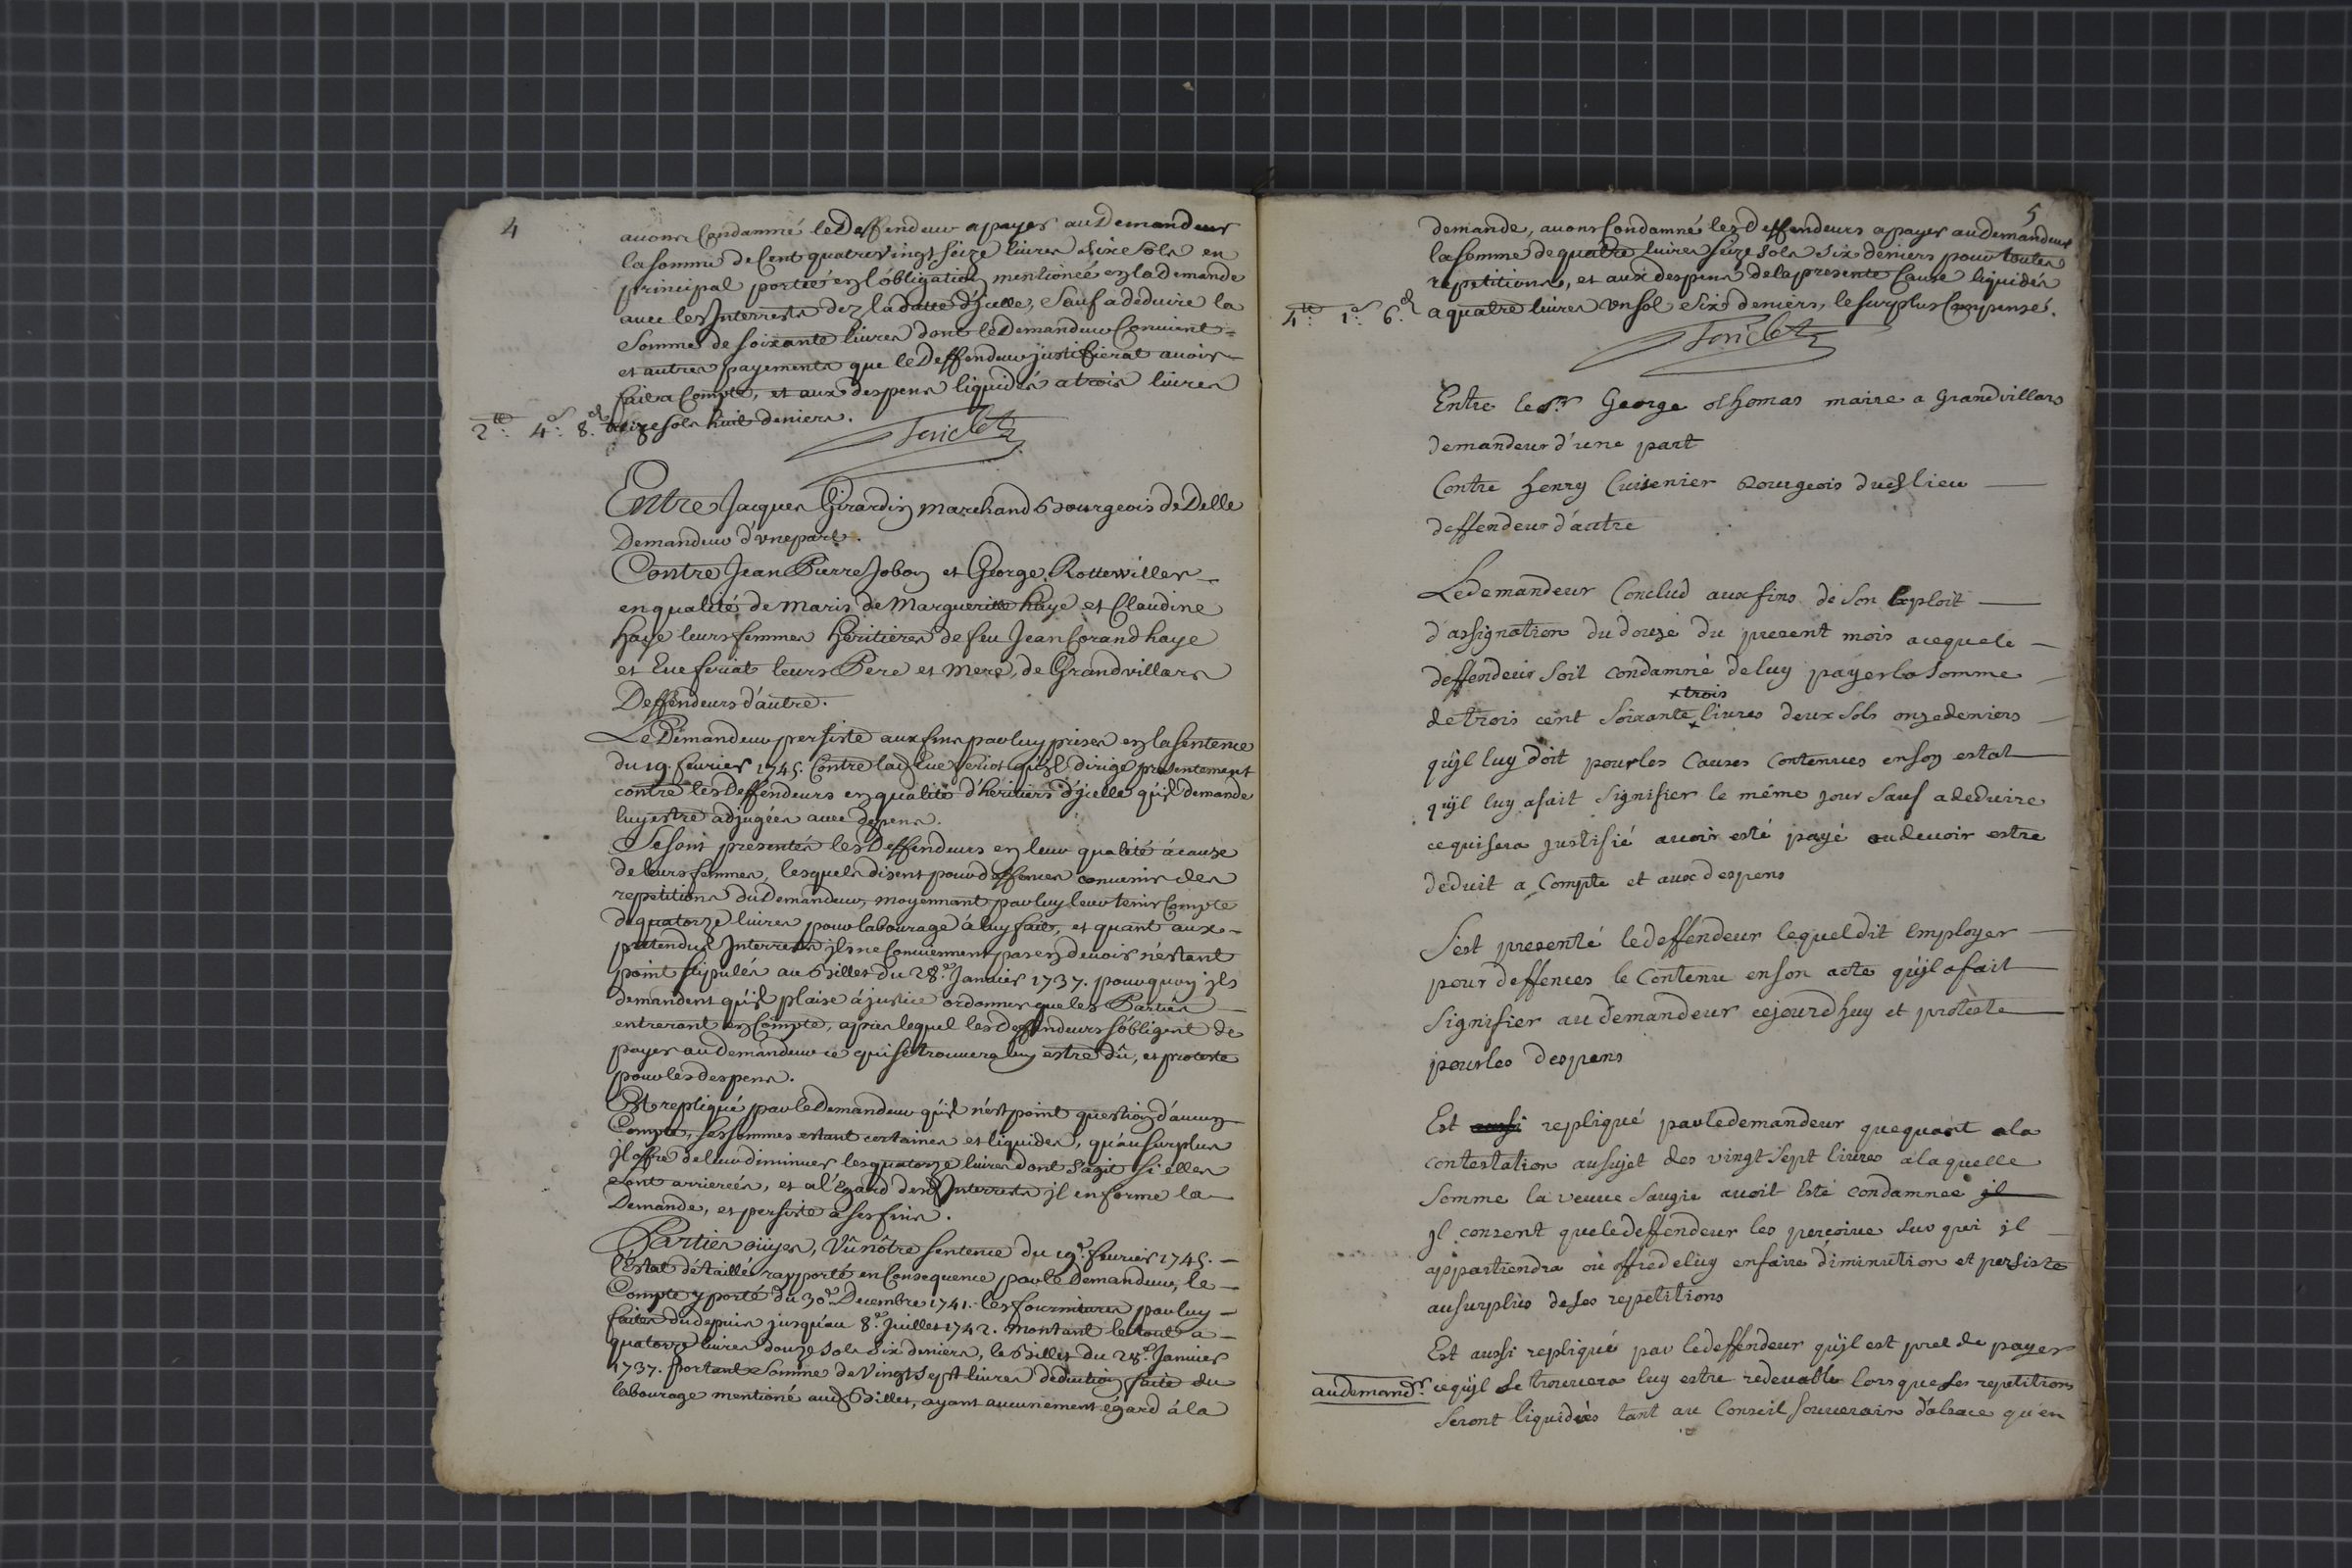 4
avons Condamné le Deffendeur a payer au Demandeur
la somme de Cent quatre vingt seize livres sixe sols en
principal portée en l'obligation mentionée en la Demande
avec les Jnterrests dez la datte d'jcelle, sauf a deduire la
somme de soixante livres dont le Demandeur Convient =
et autres payements que le Deffendeur justifierat avoir
fait a Compte, et aux despens liquidés a trois livres
2tt: 4s: 8.d treize sols huit deniers.
Entre Jacques Girardin Marchand Bourgeois de Delle
Demandeur d'vne part.
Contre Jean Pierre Jobon et George Rotterviller
en qualité de Maris de Margueritte haye et Claudine
haye leurs femmes heritieres de feu Jean Corand haye
et Eve feriat leurs Pere et Mere, de Grandvillars
Deffendeurs d'autre.
Le Demandeur persiste aux fins par luy prises en la sentence
du 19. fevrier 1745. Contre lad. Eve Feriot qu'il dirige presentement
contre les Deffendeurs en qualité d'heritiers d'jcelle qu'il demande
luy estre adjugées avec depens.
Se sont presentés les Deffendeurs en leur qualité à cause
de leurs femmes, lesquels disent pour deffences convenir des
repetitions du Demandeur, moyennant par luy leur tenir Compte
de quatorze livres pour labourage à luy fait, et quant aux
pretendus Jnterrests jls ne Conviennent pas en devoir n'estant
point stipulés au Billet du 28.e Janvier 1737. pourquoy jls
demandent qu'il plaise à justice ordonner que les Parties
entreront en Compte, après lequel les Deffendeurs s'obligent de
payer au Demandeur ce qui se trouvera luy estre dû, et proteste
pour les despens.
Est repliqué par le Demandeur qu'il n'est point question d'aucun
Compte, ses sommes estant certaines et liquides, qu'au surplus
jl offre de leur diminuer les quatorze livres dont s'agit si elles
sont arrierées, et a l'egard desd. Jnterrests jl en forme la
Demande, et persiste a ses fins.
Parties oüyes, Vû nôtre sentence du 19.e fevrier 1745.
l'Estat détaillé rapporté en Consequence par le Demandeur, le
Compte y porté du 30.e Decembre 1741. les fournitures par luy
faites du depuis jusqu'au 8.e Juillet 1742. montant le tout a
quatorze livres douze sols six deniers, le Billet du 28.e Janvier
1737. portant somme de Vingt sept livres deduction faite du
labourage mentioné aud. Billet, ayant aucunement égard à la
5
demande, avons Condamné les Deffendeurs a payer au Demandeur
la somme de quatre livres seize sols six deniers pour toutes
repetitions, et aux despens de la presente Cause liquidés
4tt: 1s: 6.d a quatre livres vn sol six deniers, le surplus Compensé.
Entre le Sr. George Thomas maire a Grandvillars
demandeur d'une part
Contre henry Cuisenier Bourgeois dud. lieu
deffendeur d'autre
Le demandeur Conclud aux fins de son Exploit
d'assignation du douze du present mois a ce que le
deffendeur soit condamné de luy payer la somme
x trois
de trois cent soixante x livres deux sols onze deniers
qu'jl luy doit pour les Causes contenues en son estat
qu'jl luy a fait signifier le même jour sauf a deduire
ce qui sera justifié avoir esté payé ou devoir estre
deduit a Compte et aux despens
S'est presenté le deffendeur lequel dit Employer
pour deffences le Contenu en son acte qu'jl a fait
signifier au demandeur cejourd'huy et proteste
pour les despens
Est aussi repliqué par le demandeur que quant a la
contestation au sujet des vingt sept livres a laquelle
somme la veuve Saugie avoit Esté condamnée jl
jl consent que le deffendeur les perçoive sur qui jl
appartiendra où offre de luy en faire diminution et persiste
au surplus de ses repetitions
Est aussi repliqué par le deffendeur qu'jl est pret de payer
au demandr. ce qu'jl se trouvera luy estre redevable lorsque ses repetitions
seront liquidées tant au Conseil souverain d'alsace qu'en